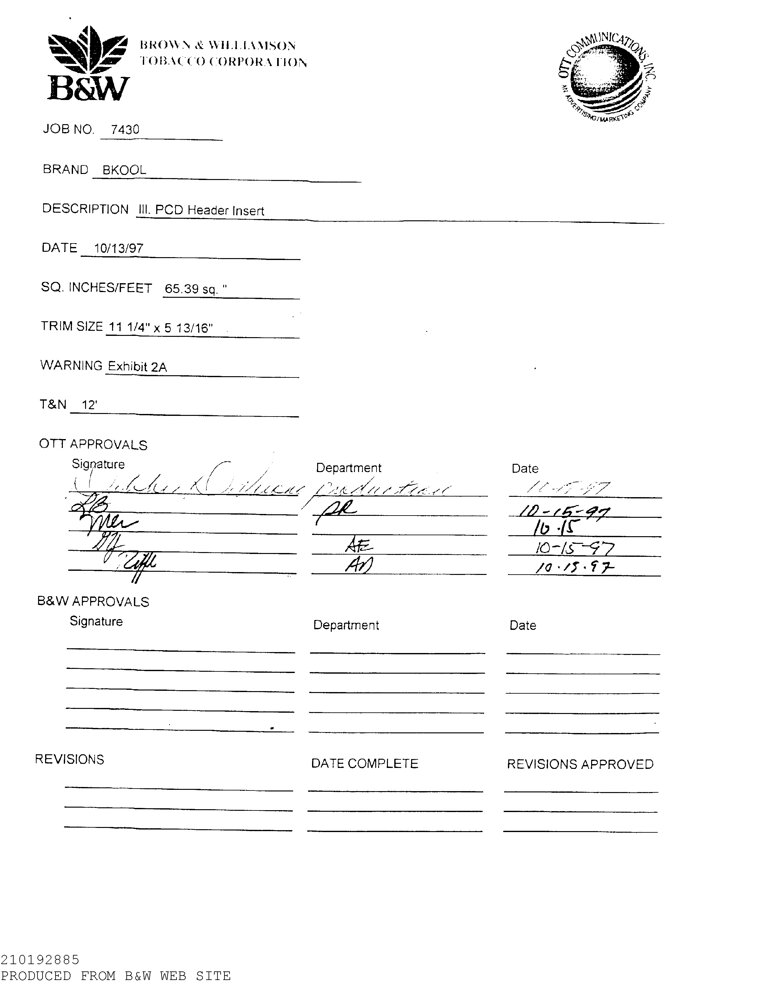 BROWN & WILLIAMSON
TOBACCO CORPORATION
B&W
OTT COMMUNICATIONS, INC.
AN ADVERTISING/MARKETING COMPANY
JOB NO. 7430
BRAND BKOOL
DESCRIPTION III. PCD Header Insert
DATE 10/13/97
SQ. INCHES/FEET 65.39 sq. "
TRIM SIZE 11 1/4" x 5 13/16"
WARNING Exhibit 2A
T&N 12'
OTT APPROVALS
Signature Department Date
production 10-15-97
LB PR 10-15-97
10.15
AE 10-15-97
AD 10.15.97
B&W APPROVALS
Signature Department Date
REVISIONS DATE COMPLETE REVISIONS APPROVED
210192885
PRODUCED FROM B&W WEB SITE